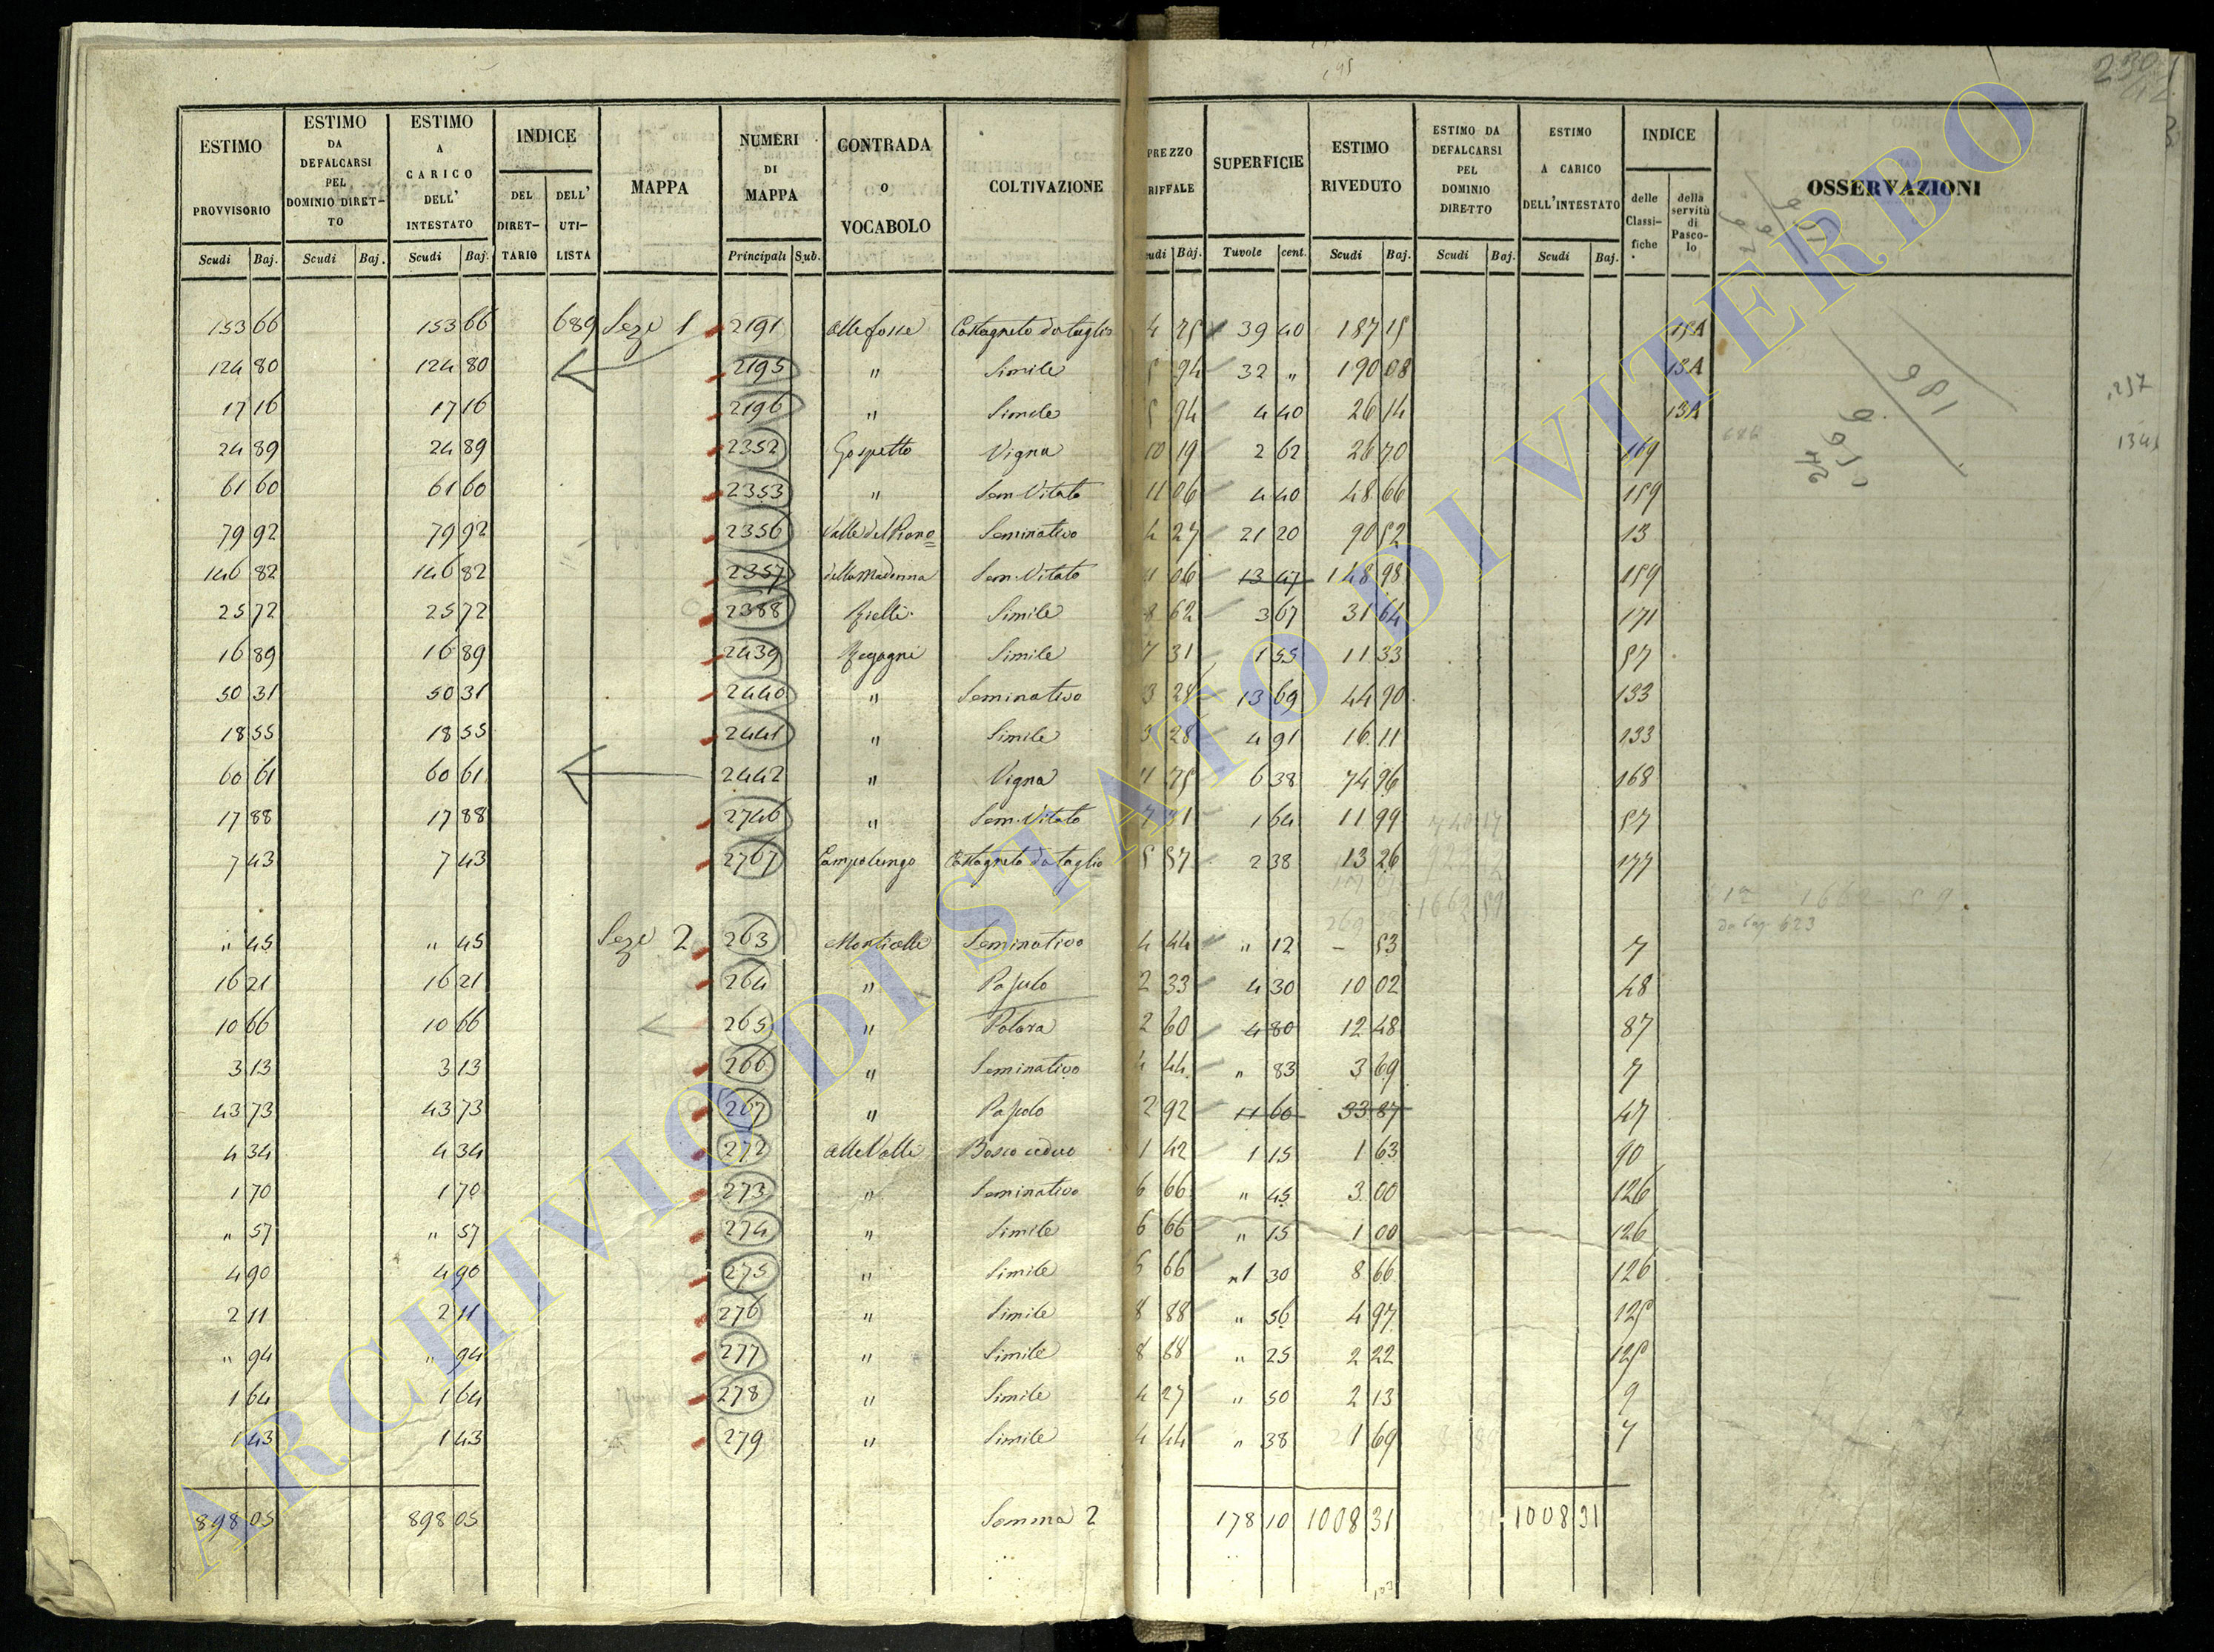 ESTIMO PROVVISORIO | ESTIMO DA DEFALCARSI PEL DOMINIO DIRETTO | ESTIMO A CARICO DELL' INTESTATO | INDICE DEL DIRETTARIO | DELL' UTILISTA | MAPPA | NUMERI DI MAPPA | CONTRADA O VOCABOLO | COLTIVAZIONE | PREZZO RIFFALE | SUPERFICIE | ESTIMO RIVEDUTO | ESTIMO DA DEFALCARSI PEL DOMINIO DIRETTO | ESTIMO A CARICO DELL'INTESTATO | INDICE delle Classifiche | della servitù di Pascolo | OSSERVAZIONI
Scudi | Baj. | Scudi | Baj. | Scudi | Baj. | Principali | Sub. | udi | Baj. | Tavole | cent. | Scudi | Baj. | Scudi | Baj. | Scudi | Baj.
153 66 | 153 66 | 689 | Seze 1 | 2191 | alle fosse | Castagneto da taglio | 4 75 | 39 40 | 187 15 | 15A
124 80 | 124 80 | 2195 | " | Simile | 5 94 | 32 " | 190 08 | 13A
17 16 | 17 16 | 2196 | " | Simile | 5 94 | 4 40 | 26 14 | 13A
24 89 | 24 89 | 2352 | Gospetto | Vigna | 10 19 | 2 62 | 26 70 | 169
61 60 | 61 60 | 2353 | " | Sem. Vitato | 11 06 | 4 40 | 48 66 | 159
79 92 | 79 92 | 2356 | Valle del Piano | Seminativo | 4 27 | 21 20 | 90 52 | 13
146 82 | 146 82 | 2357 | della Madonna | Sem. Vitato | 11 06 | 13 47 | 148 98 | 159
25 72 | 25 72 | 2388 | Rielli | Simile | 8 62 | 3 67 | 31 64 | 171
16 89 | 16 89 | 2439 | Regagni | Simile | 7 31 | 1 55 | 11 33 | 57
50 31 | 50 31 | 2440 | " | Seminativo | 3 28 | 13 69 | 44 90 | 133
18 55 | 18 55 | 2441 | " | Simile | 3 28 | 4 91 | 16 11 | 133
60 61 | 60 61 | 2442 | " | Vigna | 11 75 | 6 38 | 74 96 | 168
17 88 | 17 88 | 2746 | " | Sem. Vitato | 7 31 | 1 64 | 11 99 | 57
7 43 | 7 43 | 2767 | Campolungo | Castagneto da taglio | 5 57 | 2 38 | 13 26 | 177
" 45 | " 45 | Seze 2 | 263 | Monticelli | Seminativo | 4 44 | " 12 | – 53 | 7
16 21 | 16 21 | 264 | " | Pascolo | 2 33 | 4 30 | 10 02 | 48
10 66 | 10 66 | 265 | " | 2 60 | 4 80 | 12 48 | 87
3 13 | 3 13 | 266 | " | Seminativo | 4 44 | " 83 | 3 69 | 7
43 73 | 43 73 | 267 | " | Pascolo | 2 92 | 11 60 | 33 87 | 47
4 34 | 4 34 | 272 | alle Valli | Bosco ceduo | 1 42 | 1 15 | 1 63 | 90
1 70 | 1 70 | 273 | " | Seminativo | 6 66 | " 45 | 3 00 | 126
" 57 | " 57 | 274 | " | Simile | 6 66 | " 15 | 1 00 | 126
4 90 | 4 90 | 275 | " | Simile | 6 66 | 1 30 | 8 66 | 126
2 11 | 2 11 | 276 | " | Simile | 8 88 | " 56 | 4 97 | 125
" 94 | " 94 | 277 | " | Simile | 8 88 | " 25 | 2 22 | 125
1 64 | 1 64 | 278 | " | Simile | 4 27 | " 50 | 2 13 | 9
1 43 | 1 43 | 279 | " | Simile | 4 44 | " 38 | 1 69 | 7
898 05 | 898 05 | Somma 2 | 178 10 | 1008 31 | 1008 31
ARCHIVIO DI STATO DI VITERBO